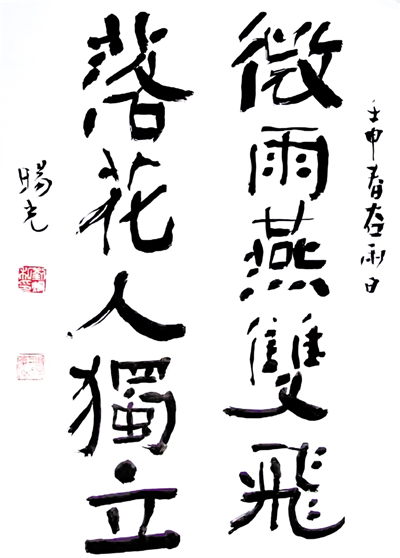 壬申春谷雨日
微雨燕雙飛
落花人獨立
暘光